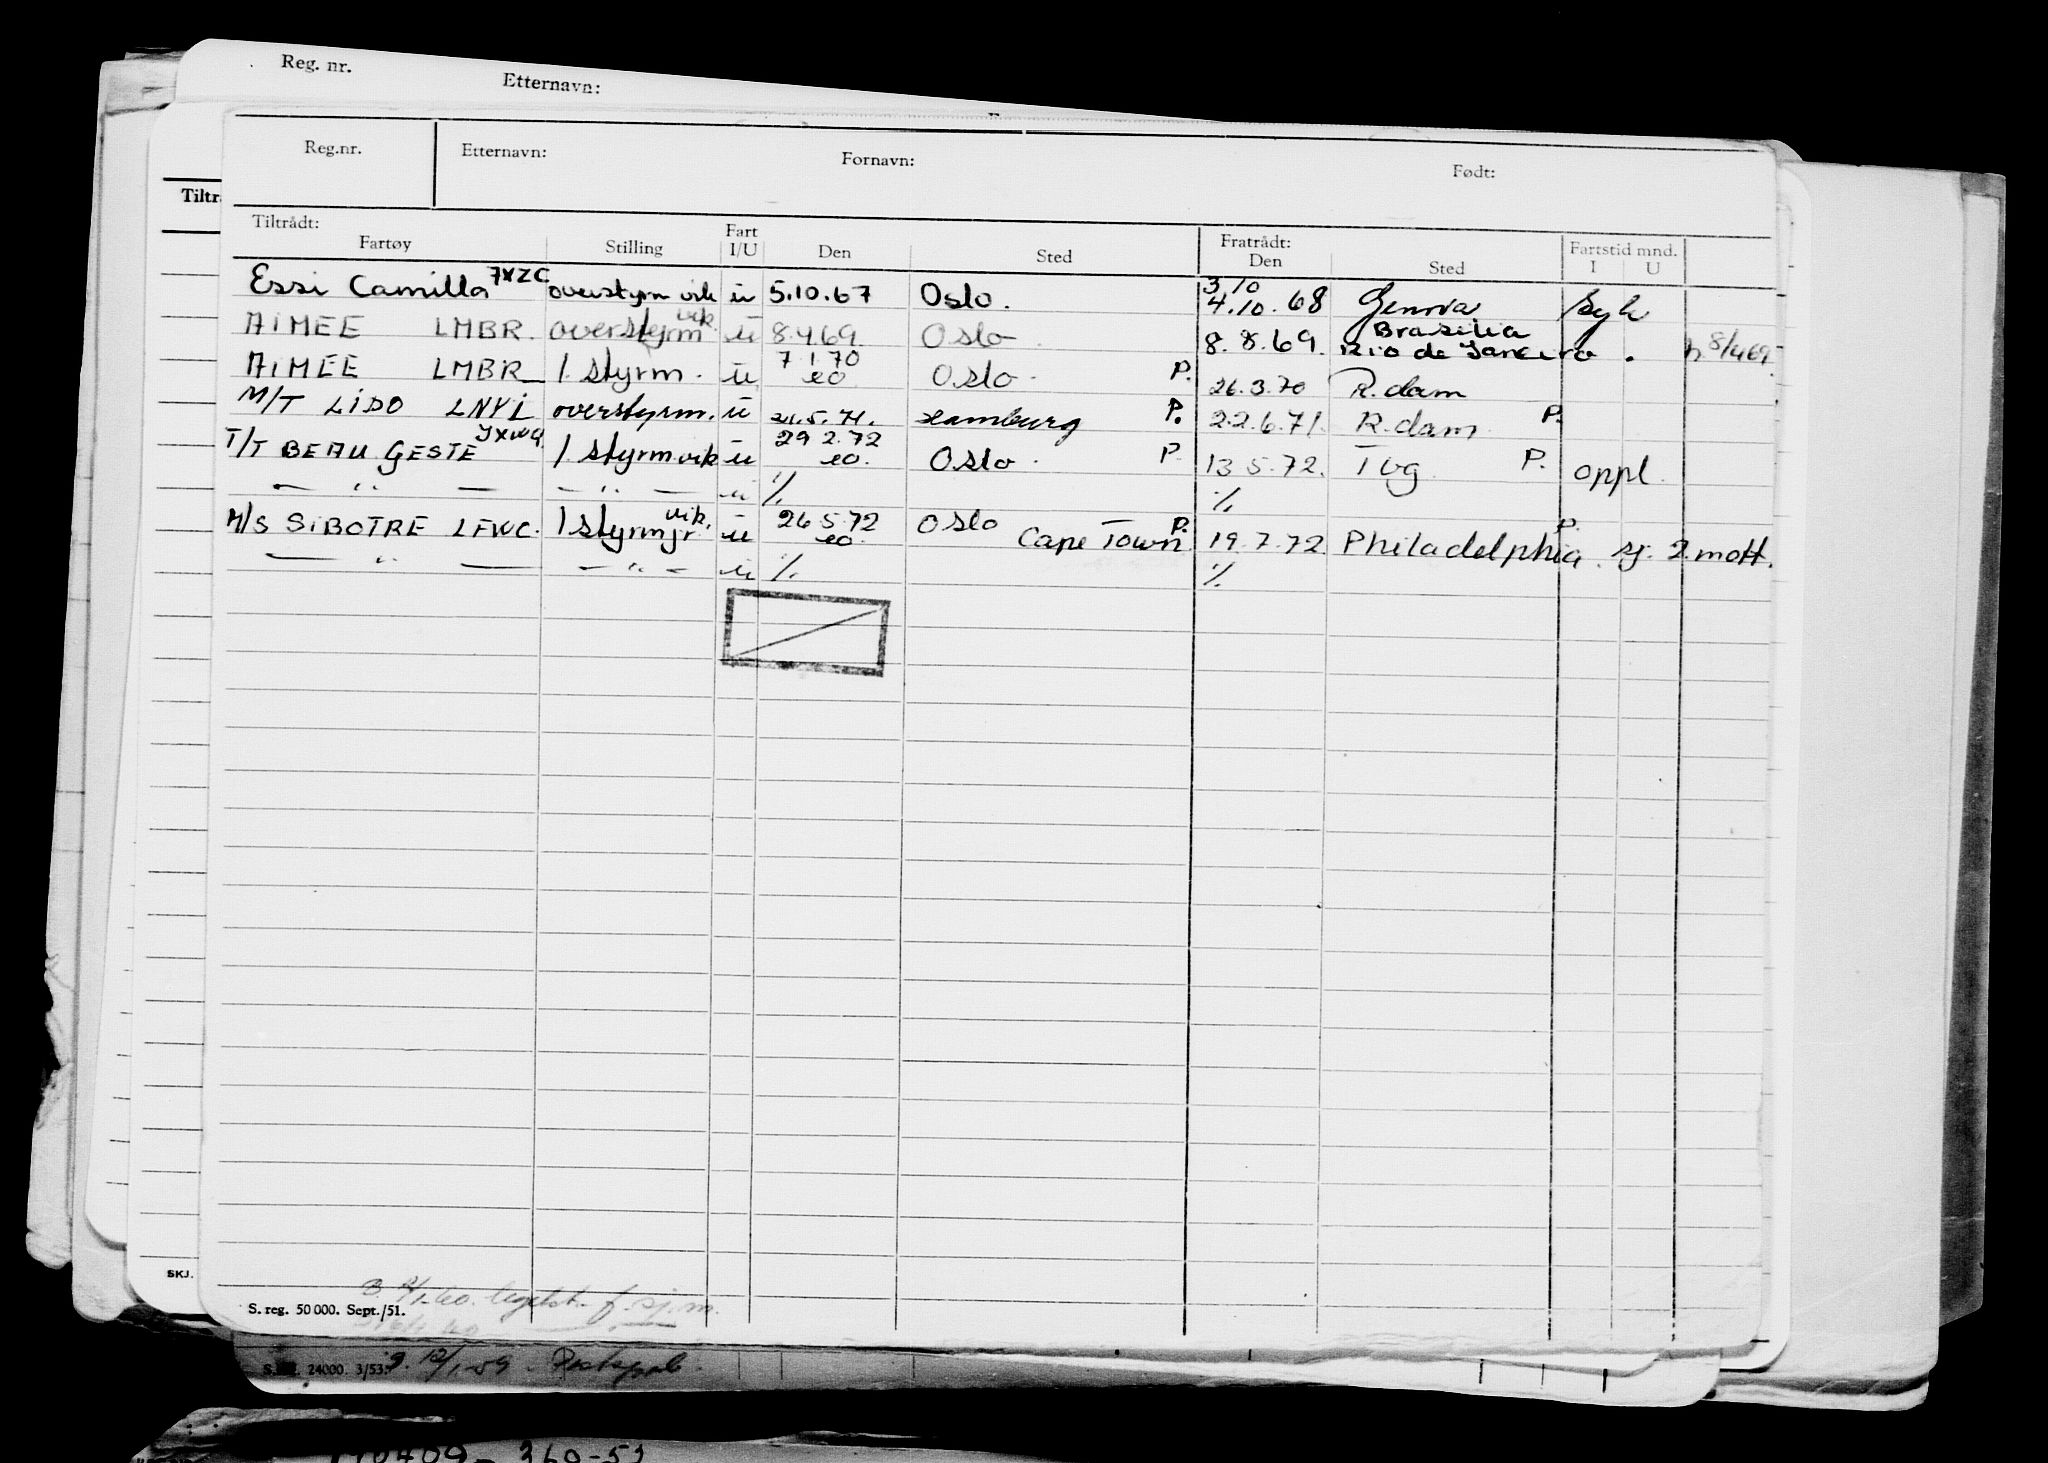 Reg. nr. Etternavn:
Reg.nr. Etternavn: Fornavn: Født:
Tiltrådt: Fart Fratrådt: Fartstid mnd.
Fartøy Stilling I/U Den Sted Den Sted I U
Essi Camilla JXZC overstyrm vik u 5.10.67 Oslo. 3/10 4.10.68 Genova syk
AIMEE LMBR. overstyrm vik. u 8.4.69. Oslo 8.8.69. Brasilia Rio de Janeiro. 8/4 69.
AIMEE LMBR 1 styrm. u 7 1 70 eo Oslo P. 26.3.70 R.dam
M/T LIDO LNYI overstyrm. u 21.5.71. Hamburg P. 22.6.71. R.dam P.
T/T BEAU GESTE JXWQ 1 styrm vik u 29 2.72 eo. Oslo P. 13 5.72. Tbg P. oppl.
— " — — " — u %. %.
M/S SIBOTRE LFWC. 1 styrm jr vik. u 26 5 72 eo. Oslo Cape Town P. 19.7.72 Philadelphia P. sj. 2 mott.
— " — — " — u %. %.
SKJ.
S. reg. 50 000. Sept./51.
24000. 3/53.
360-53